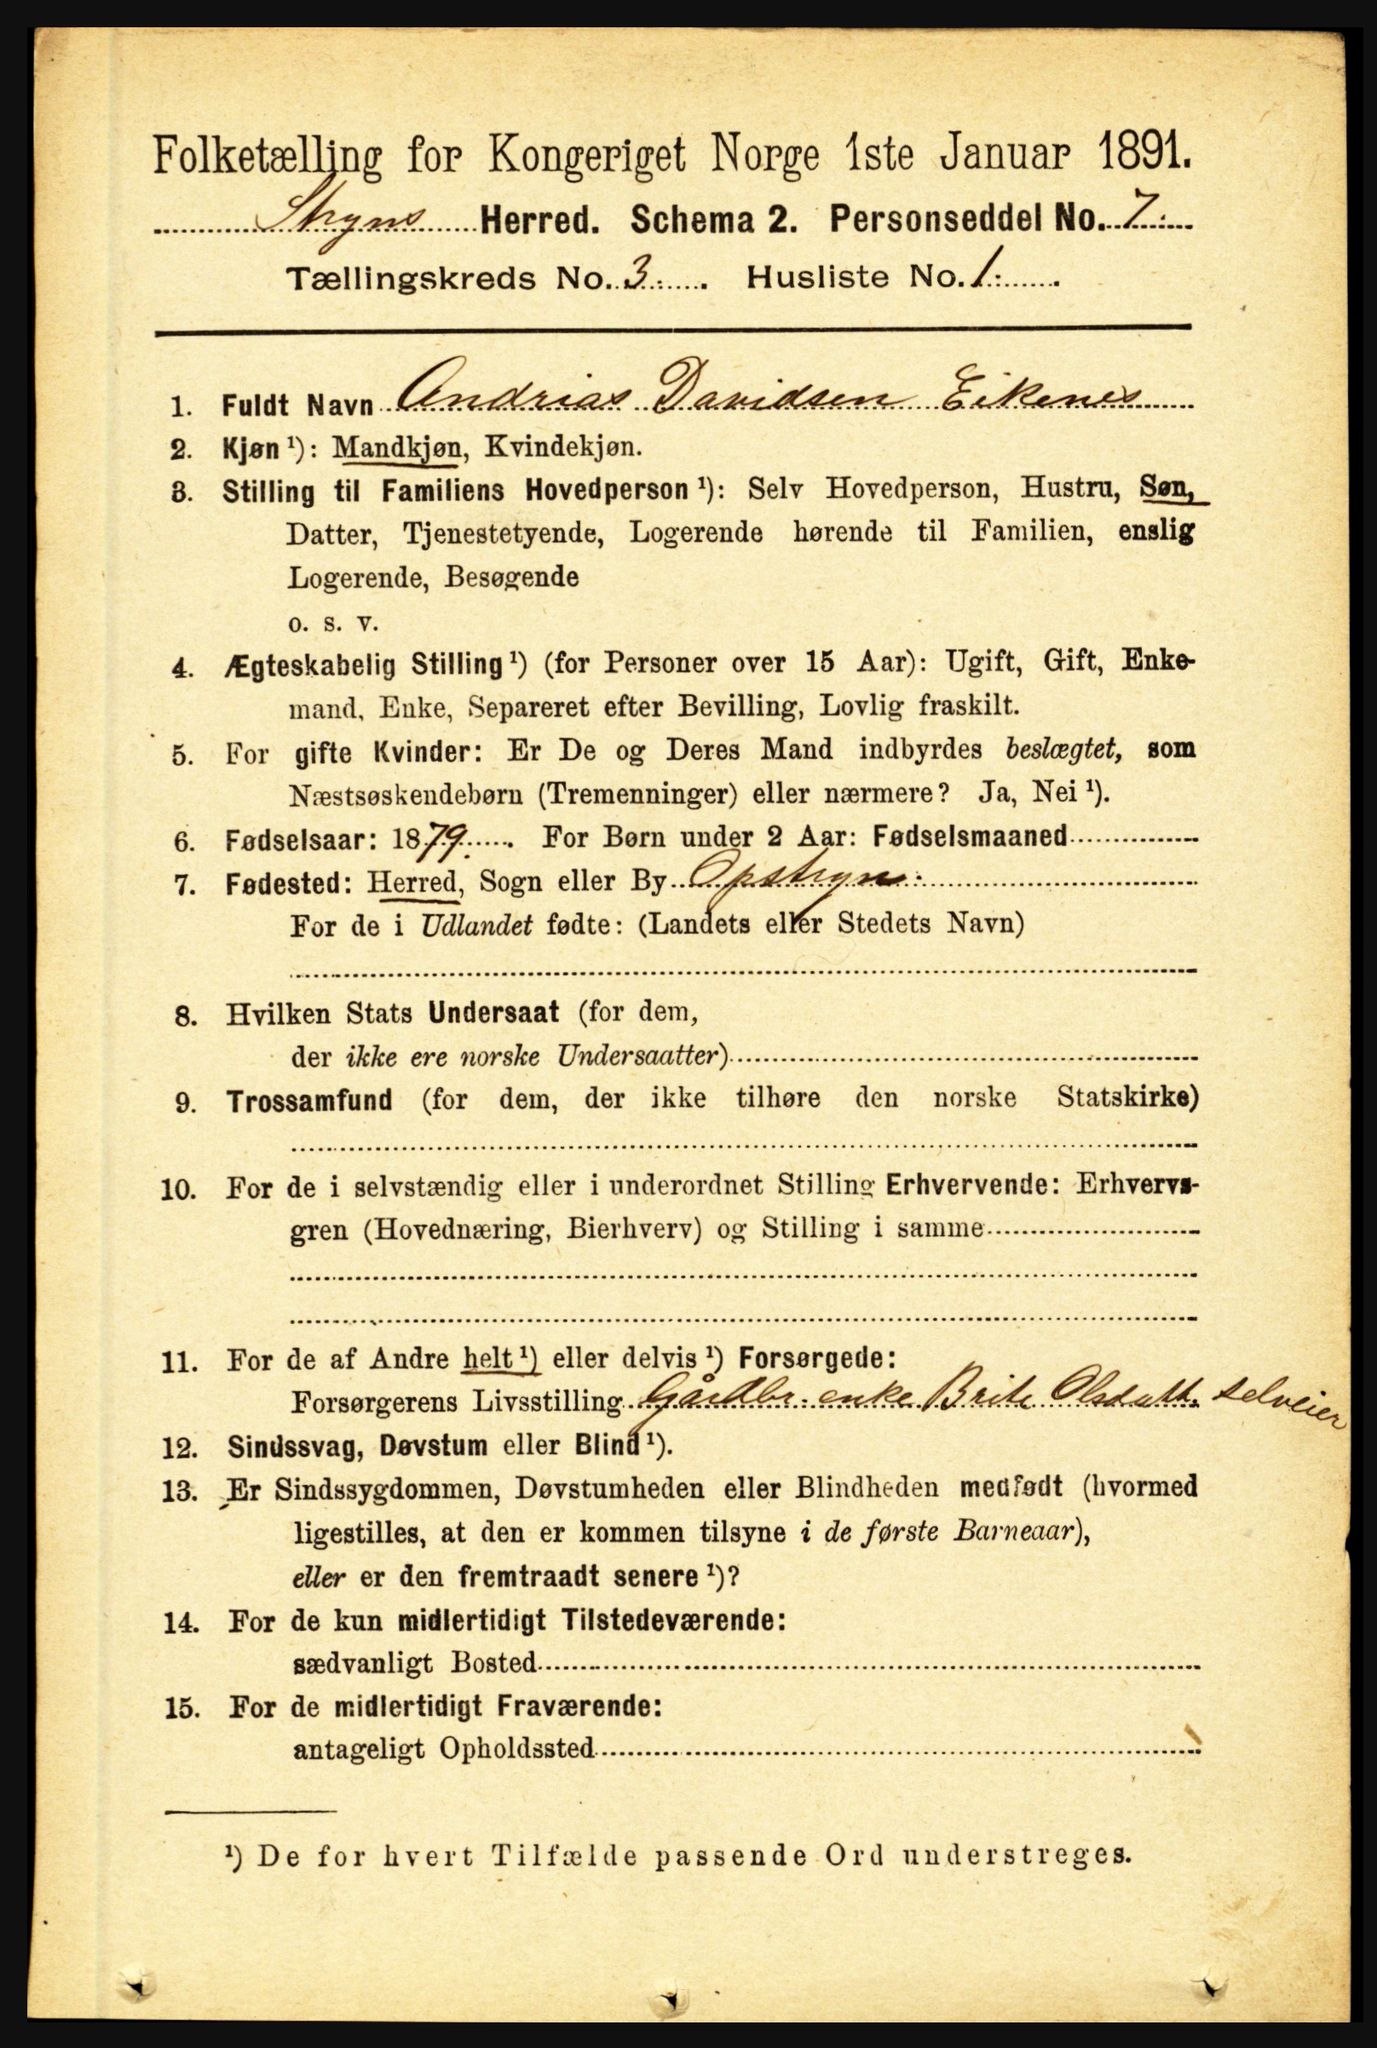 Folketælling for Kongeriget Norge 1ste Januar 1891.
Stryns Herred. Schema 2. Personseddel No. 7.
Tællingskreds No. 3. Husliste No. 1.
1. Fuldt Navn Andrias Davidsen Eikenes
2. Kjøn¹): Mandkjøn, Kvindekjøn.
3. Stilling til Familiens Hovedperson¹): Selv Hovedperson, Hustru, Søn,
Datter, Tjenestetyende, Logerende hørende til Familien, enslig
Logerende, Besøgende
o. s. v.
4. Ægteskabelig Stilling¹) (for Personer over 15 Aar): Ugift, Gift, Enke-
mand, Enke, Separeret efter Bevilling, Lovlig fraskilt.
5. For gifte Kvinder: Er De og Deres Mand indbyrdes beslægtet, som
Næstsøskendebørn (Tremenninger) eller nærmere? Ja, Nei¹).
6. Fødselsaar: 1879. For Børn under 2 Aar: Fødselsmaaned
7. Fødested: Herred, Sogn eller By Opstryn.
For de i Udlandet fødte: (Landets eller Stedets Navn)
8. Hvilken Stats Undersaat (for dem,
der ikke ere norske Undersaatter)
9. Trossamfund (for dem, der ikke tilhøre den norske Statskirke)
10. For de i selvstændig eller i underordnet Stilling Erhvervende: Erhvervs-
gren (Hovednæring, Bierhverv) og Stilling i samme
11. For de af Andre helt¹) eller delvis¹) Forsørgede:
Forsørgerens Livsstilling Gårdbr. enke Brite Olsdatt. selveier
12. Sindssvag, Døvstum eller Blind¹).
13. Er Sindssygdommen, Døvstumheden eller Blindheden medfødt (hvormed
ligestilles, at den er kommen tilsyne i de første Barneaar),
eller er den fremtraadt senere¹)?
14. For de kun midlertidigt Tilstedeværende:
sædvanligt Bosted
15. For de midlertidigt Fraværende:
antageligt Opholdssted
¹) De for hvert Tilfælde passende Ord understreges.